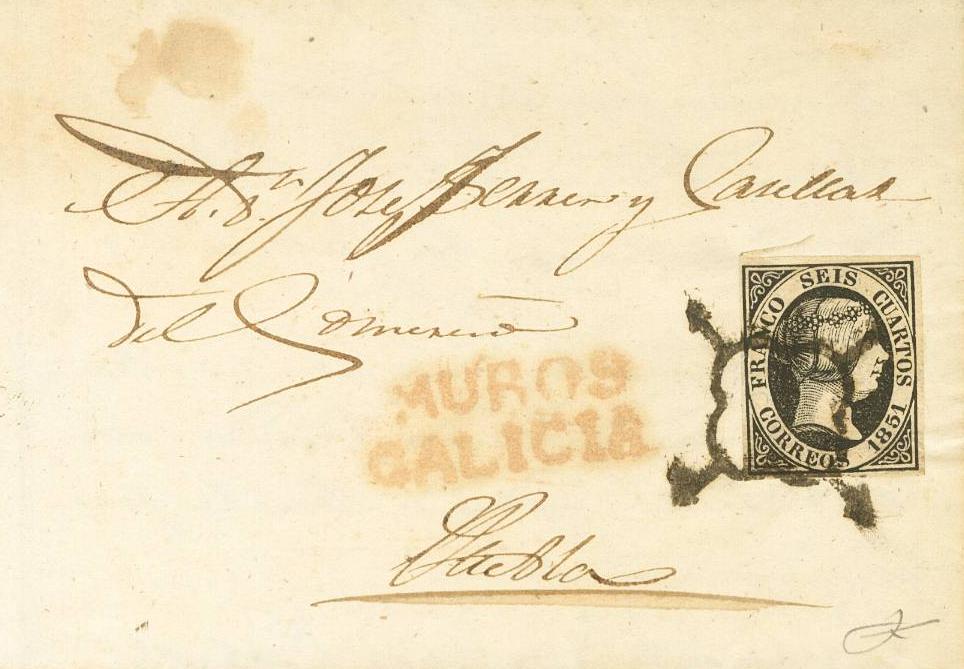 A D.ⁿ José Ferrer y Casellas
del Comercio
FRANCO SEIS CUARTOS
CORREOS 1851
MUROS
GALICIA
Puebla